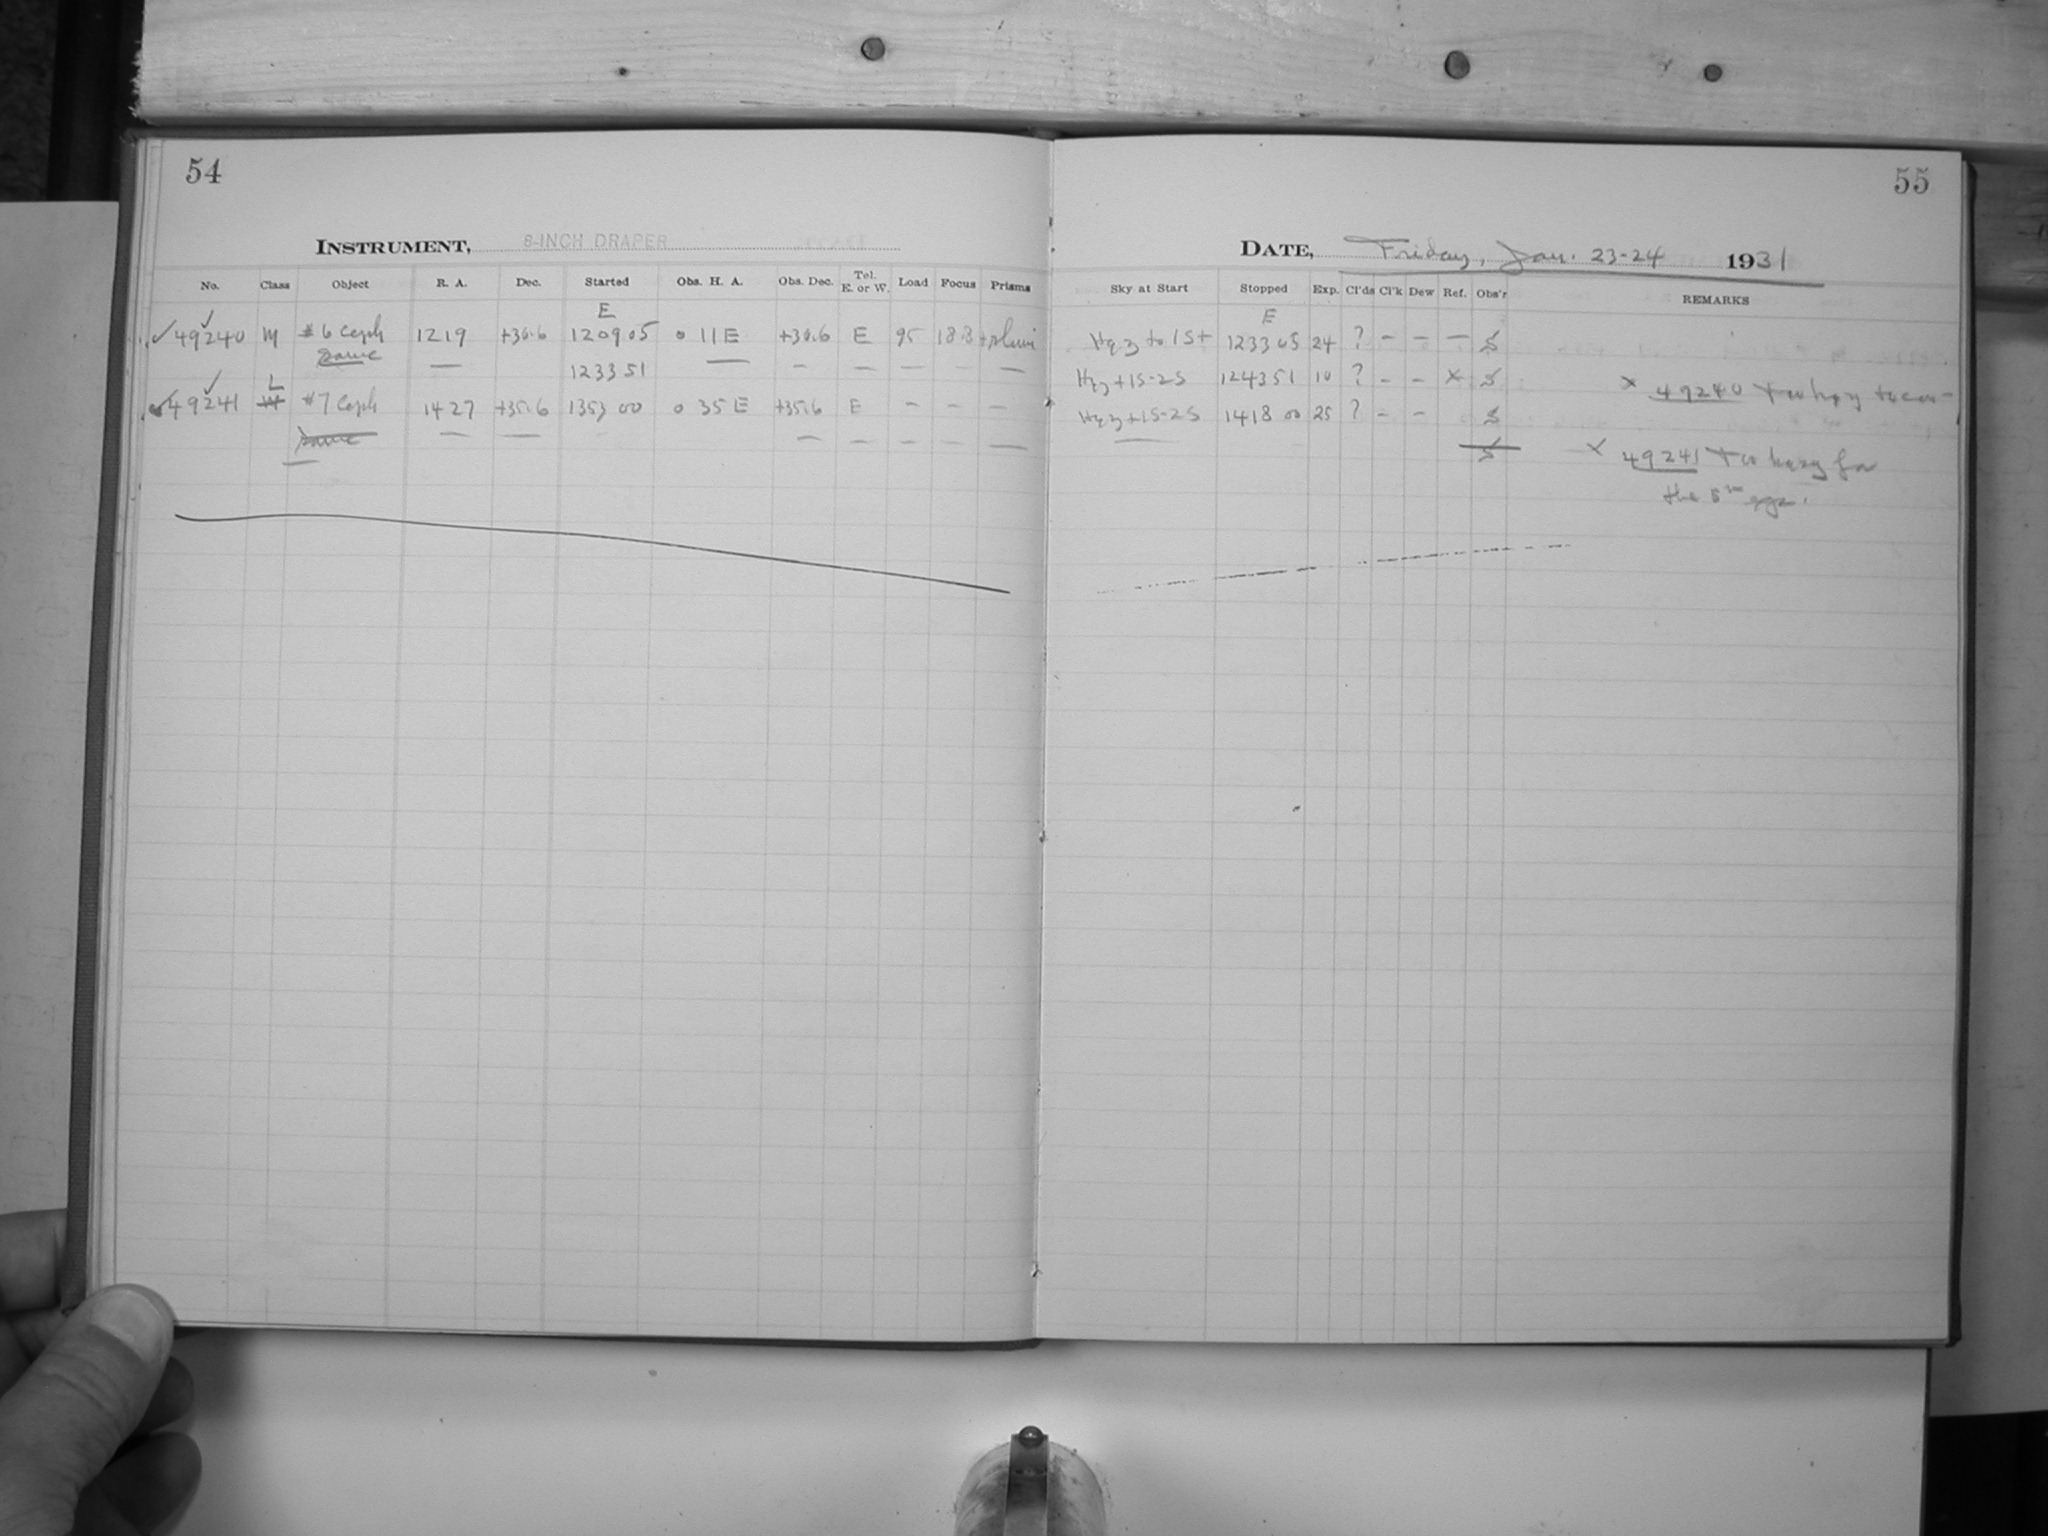 54
INSTRUMENT, 8-INCH DRAPER
No. Class Object R. A. Dec. Started Obs. H. A. Obs. Dec. Tel. E. or W. Load Focus Prisms
E
49240 M #6 Ceph 12 19 +30.6 12 09 05 0 11 E +30.6 E 95 18.8
Same — 12 33 51 — — — — — —
L
49241 #7 Ceph 14 27 +35.6 13 53 00 0 35 E +35.6 E — — —
Same — — — — — — —
55
DATE, Friday, Jan. 23-24 1931
Sky at Start Stopped Exp. Cl'ds Cl'k Dew Ref. Obs'r REMARKS
E
Hazy to 1S+ 12 33 05 24 ? — — — S
Hzy +1S-2S 12 43 51 10 ? — — X S X 49240 Too hazy to con-
Hazy +1S-2S 14 18 00 25 ? — — S
S X 49241 Too hazy for
the 5th